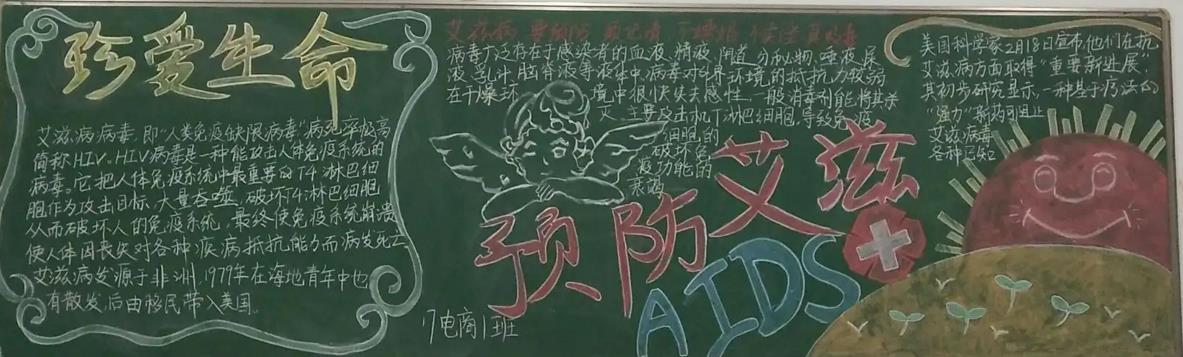 珍爱生命
艾滋病病毒,即"人类免疫缺限病毒"病死率极高
简称HIV。HIV病毒是一种能攻击人体免疫系统的
病毒。它把人体免疫系统中最重要的T4淋巴细胞
胞作为攻击目标,大量吞噬,破坏T4淋巴细胞
从而破坏人的免疫系统,最终使免疫系统崩溃
使人体因丧失对各种疾病抵抗能力而病发死亡
艾滋病发源于非洲,1979年在海地青年中也
有散发,后由移民带入美国。
艾滋病 要预防
病毒广泛存在于感染者的血液,精液,阴道分秘物,唾液,尿
液,乳汁,脑脊液等液体中,病毒对外界环境的抵抗力较弱
在干燥环境中很快失去感性,一般消毒剂能将其杀
灭,主要攻击机T淋巴细胞,导致免疫
细胞的
破坏免
疫功能的
衰竭
预防艾滋
AIDS
17电商1班
美国科学家2月18日宣布,他们在抗
艾滋病方面取得"重要新进展"
其初步研究显示,一种基于疗法的
"强力"新药可阻止
艾滋病毒
各种已知